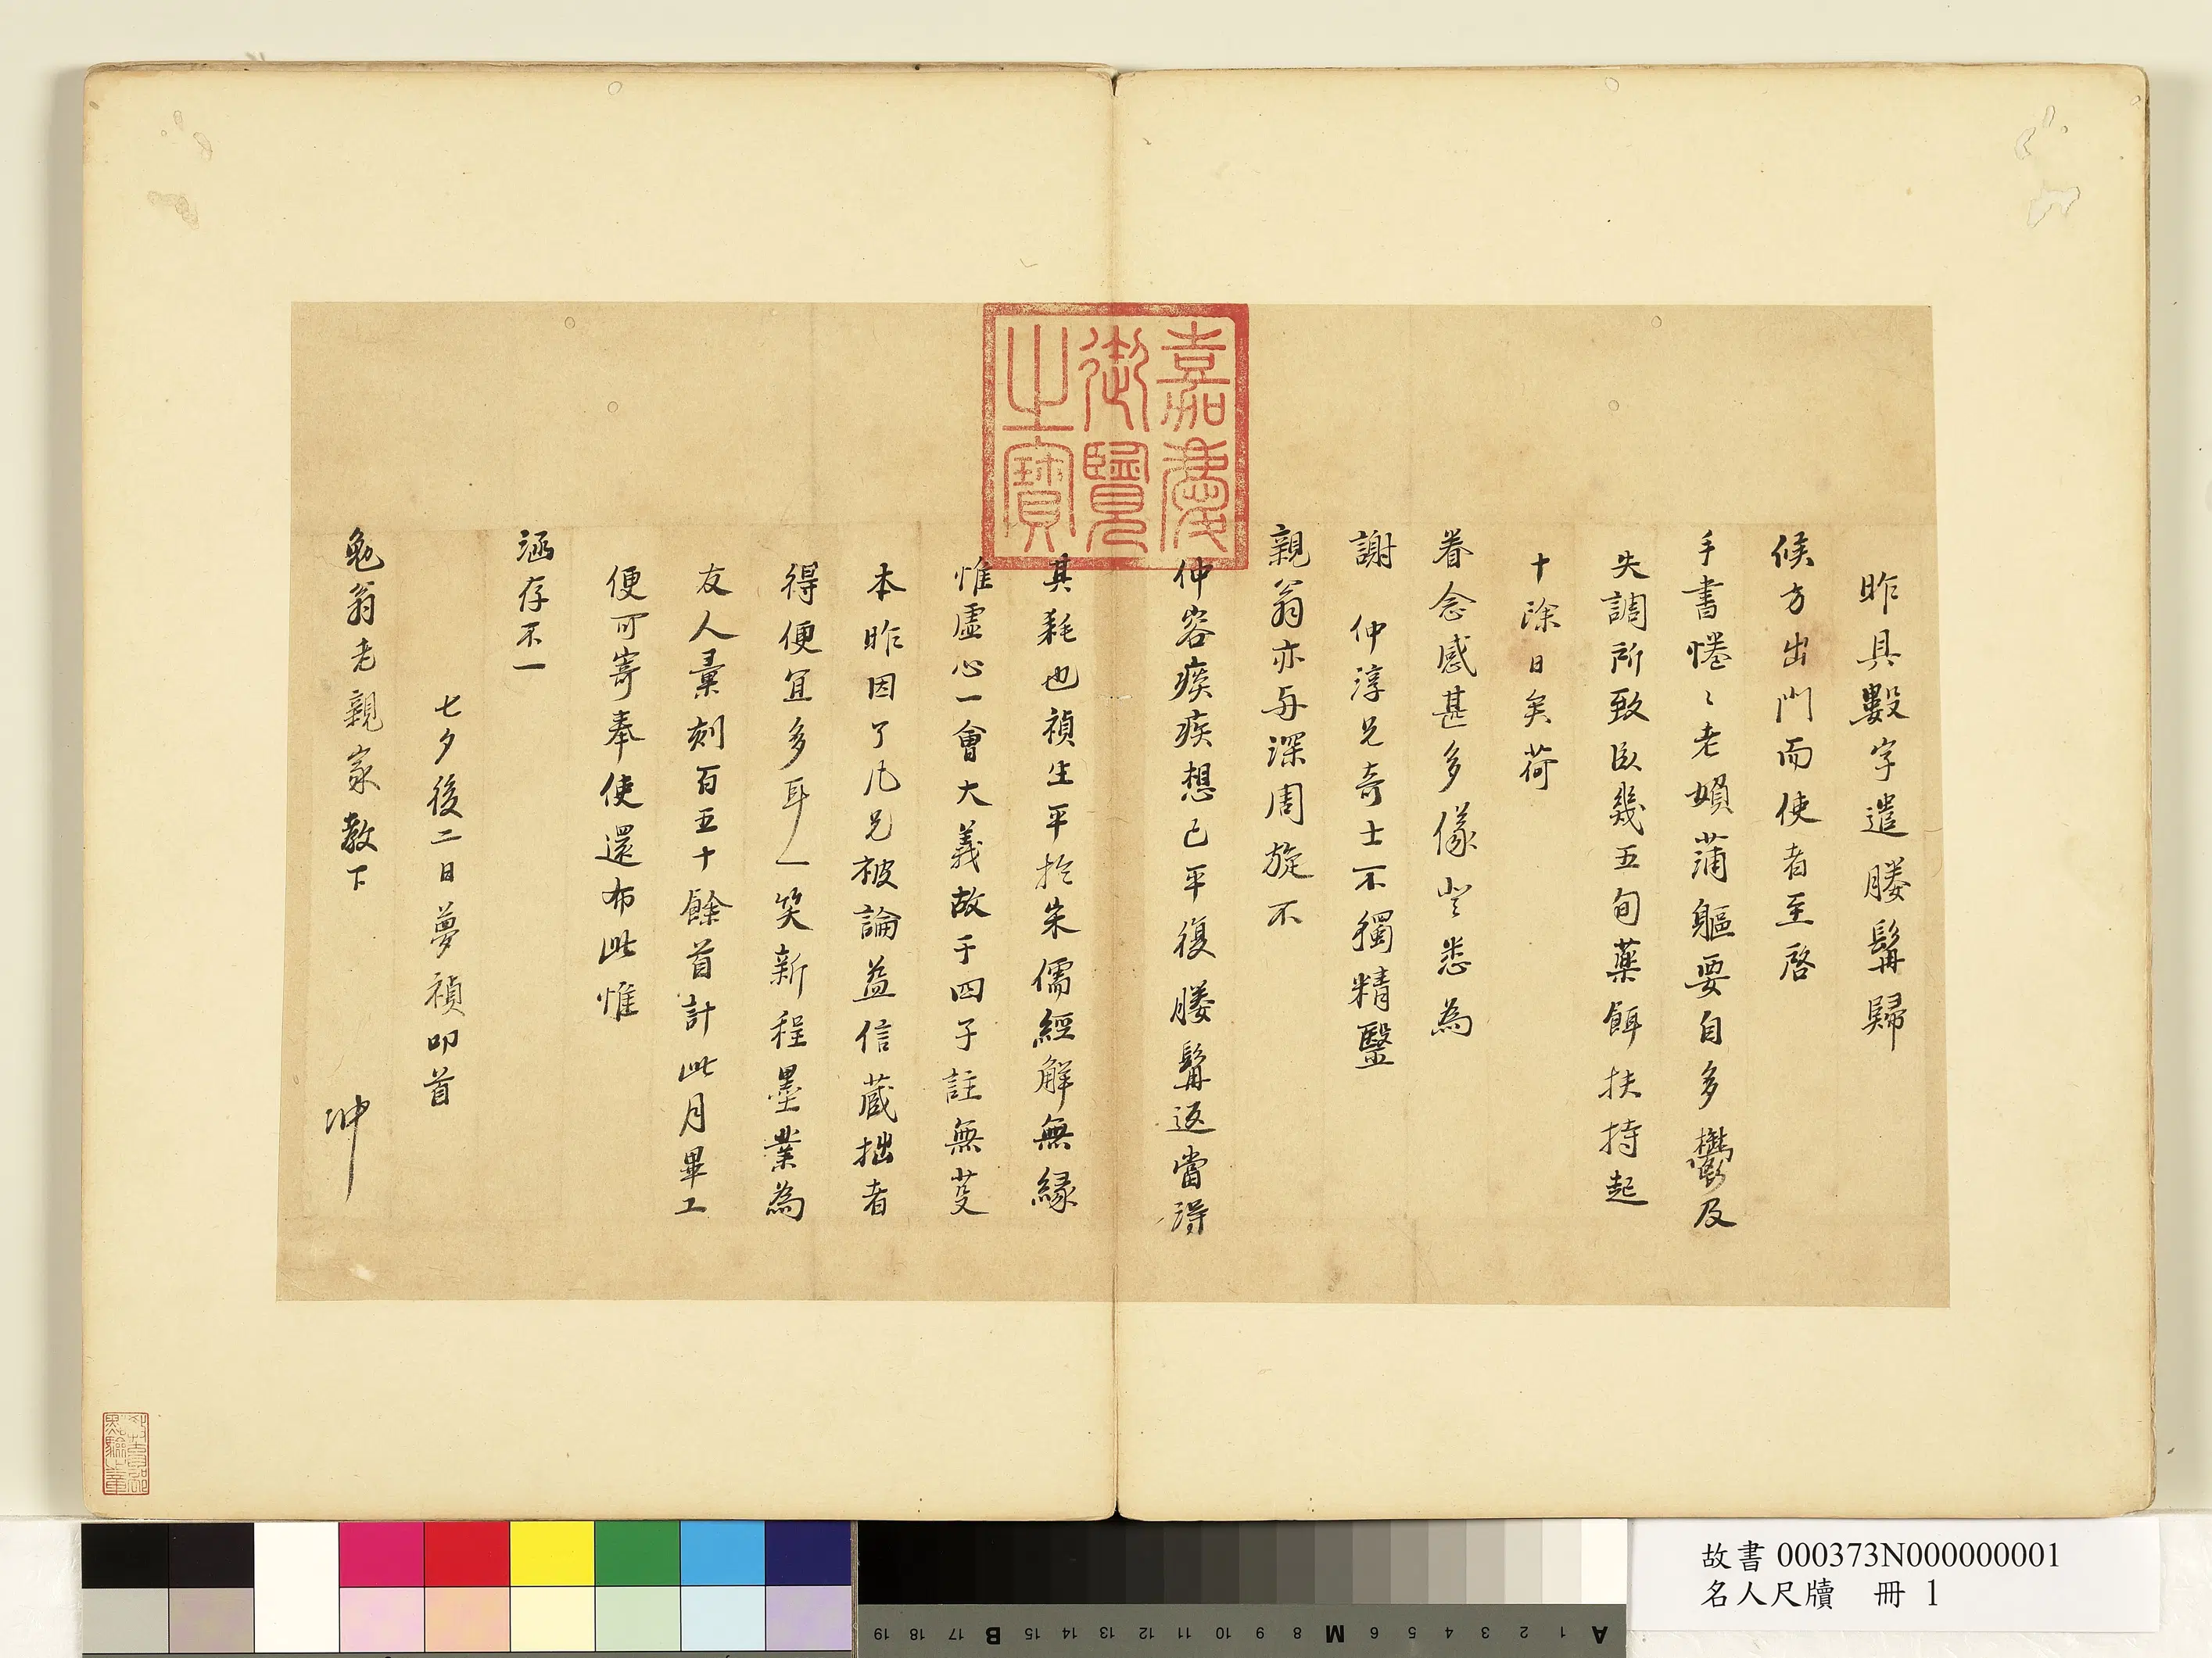 昨具數字遣媵髯歸
候方出門而使者至啓
手書惓〻老嬾蒲軀要自多鬱及
失調所致臥幾五旬藥餌扶持起
十餘日矣荷
眷念感甚多儀登悉為
謝 仲淳兄奇士不獨精醫
親翁亦与深周旋不
仲容疾想已平復媵髯返當得
其耗也禎生平於朱儒經解無緣
惟虛心一會大義故于四子註無
本昨因了凡兄被論益信藏拙者
得便宜多耳一笑新程墨業為
友人彙刻百五十餘首計此月畢工
便可寄奉使還布此惟
涵存不一
七夕後二日夢禎叩首
勉翁老親家教下
冲
嘉慶
御覽
之寶
故書000373N000000001
名人尺牘 冊 1
A 1 2 3 4 5 6 M 8 9 10 11 12 13 14 15 B 17 18 19